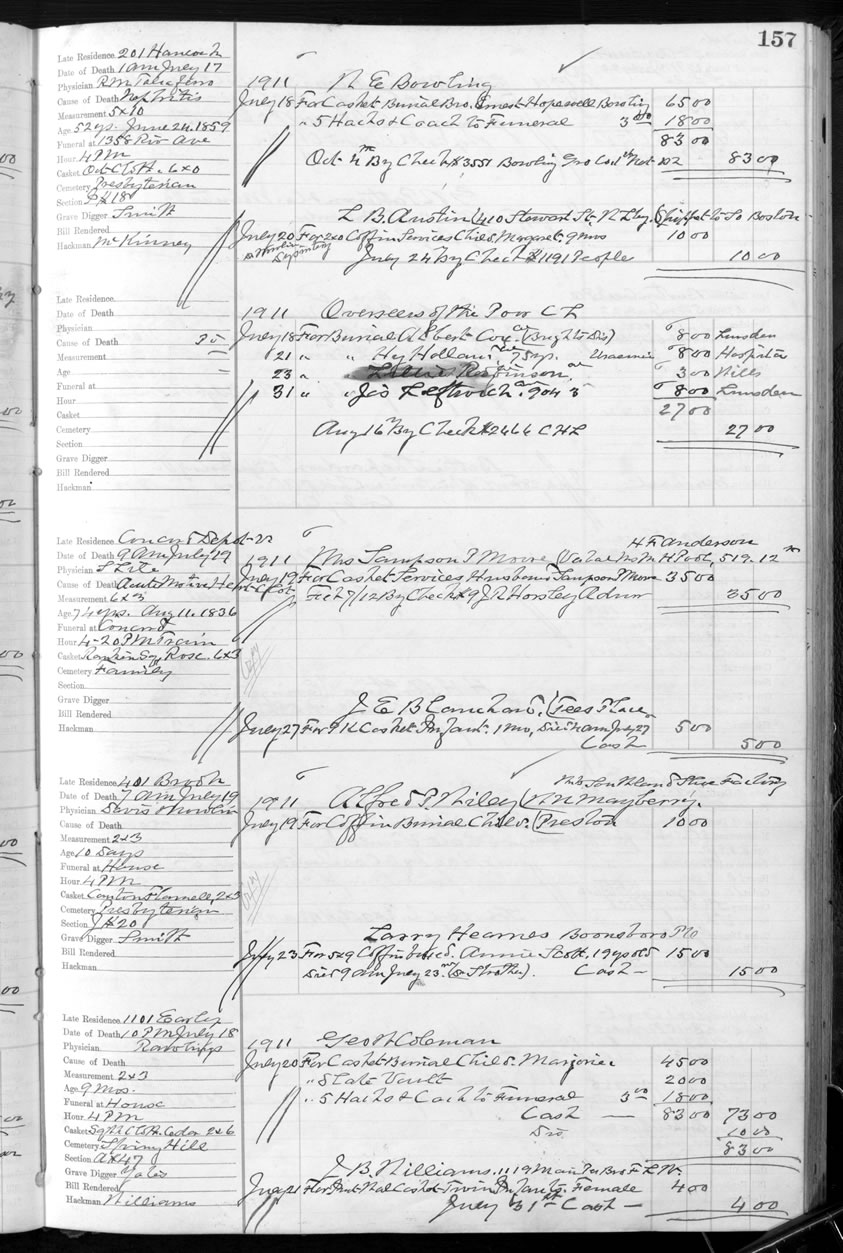 157
Late Residence 201 Hancock
Date of Death 1 am July 17
Physician
Cause of Death Nephritis
Measurement 5x10
Age 52 yrs. June 24. 1859
Funeral at 1358 Riv Ave
Hour 4 PM
Casket Oct 6x0
Cemetery Presbyterian
Section
Grave Digger Smith
Bill Rendered
Hackman McKinney
1911 N. E. Bowling
July 18 For Casket Burial Bro. Ernest Hopewell Bowling 65 00
" 5 Hacks & Coach to Funeral 3 00 18 00
83 00
Oct 4 By Check # 3551 Bowling 83 00
L B. Austin (410 Stewart St.
July 20 For 2x0 Coffin Services Child. Margaret. 9 mos 10 00
July 24 By Check # 1191 Peoples 10 00
Late Residence
Date of Death
Physician
Cause of Death
Measurement
Age
Funeral at
Hour
Casket
Cemetery
Section
Grave Digger
Bill Rendered
Hackman
1911 Overseers of the Poor C L
July 18 For Burial Albert Cox. (Brights Dis) 8 00 Lumsden
21 " " Hy Holland 7 8 00 Hospital
23 " Robinson 3 00 Mills
31 " " Jas Leftwich 8 00 Lumsden
27 00
Aug 16 By Check # 2466 C H L 27 00
Late Residence Concord Depot
Date of Death 9 am July 19
Physician
Cause of Death Acute
Measurement 6x3
Age 74 yrs. Aug 11. 1836
Funeral at Concord
Hour 4-20 PM Train
Casket Rose. 6x3
Cemetery Family
Section
Grave Digger
Bill Rendered
Hackman
H F Anderson
1911 Mrs Sampson P Moore 519. 12
July 19 For Casket Services Husband Sampson P Moore 35 00
Feb 7/12 By Check # 9 J R Horsley Admr 35 00
J E Blanchard.
July 27 For Casket Infant. 1 mo, Died July 27 5 00
Cash 5 00
Late Residence 401 Brook
Date of Death 7 am July 19
Physician Davis
Cause of Death
Measurement 2x3
Age 10 Days
Funeral at House
Hour 4 PM
Casket Canton Flannell 2x3
Cemetery Presbyterian
Section J # 20
Grave Digger Smith
Bill Rendered
Hackman
Southland Shoe Factory
1911 Alfred P. Wiley Mayberry.
July 19 For Coffin Burial Child. (Preston 10 00
Larry Hearnes Boonsboro
July 23 For 5x9 Coffin Annie Scott. 19 yrs old 15 00
Died 9 am July 23. Cash — 15 00
Late Residence 1101 Early
Date of Death 10 PM July 18
Physician Rawlings
Cause of Death
Measurement 2x3
Age 9 Mos.
Funeral at House
Hour 4 PM
Casket Cedar 2x6
Cemetery Spring Hill
Section A # 47
Grave Digger Yates
Bill Rendered
Hackman Williams
1911 Geo H Coleman
July 20 For Casket Burial Child. Marjorie 45 00
" Slate Vault 20 00
" 5 Hacks & Coach to Funeral 3 00 18 00
Cash — 83 00 73 00
Dis 10 00
83 00
J B. Williams. 1119 Main
July 21 For Casket Twin Infants. Female 4 00
July 31st Cash — 4 00